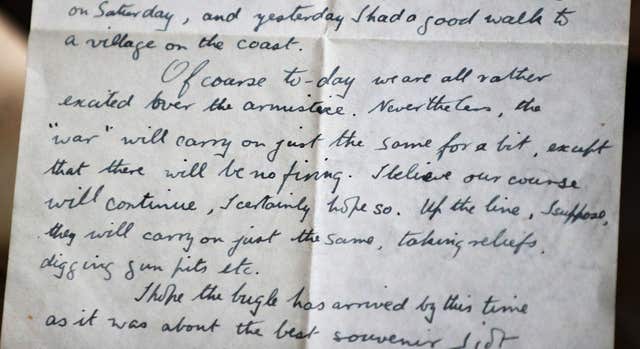 on Saturday, and yesterday I had a good walk to
a village on the coast.
Of course to-day we are all rather
excited over the armistice. Nevertheless, the
"war" will carry on just the same for a bit, except
that there will be no firing. I believe our course
will continue, I certainly hope so. Up the line, I suppose,
they will carry on just the same, taking reliefs,
digging gun pits etc.
I hope the bugle has arrived by this time
as it was about the best souvenir I